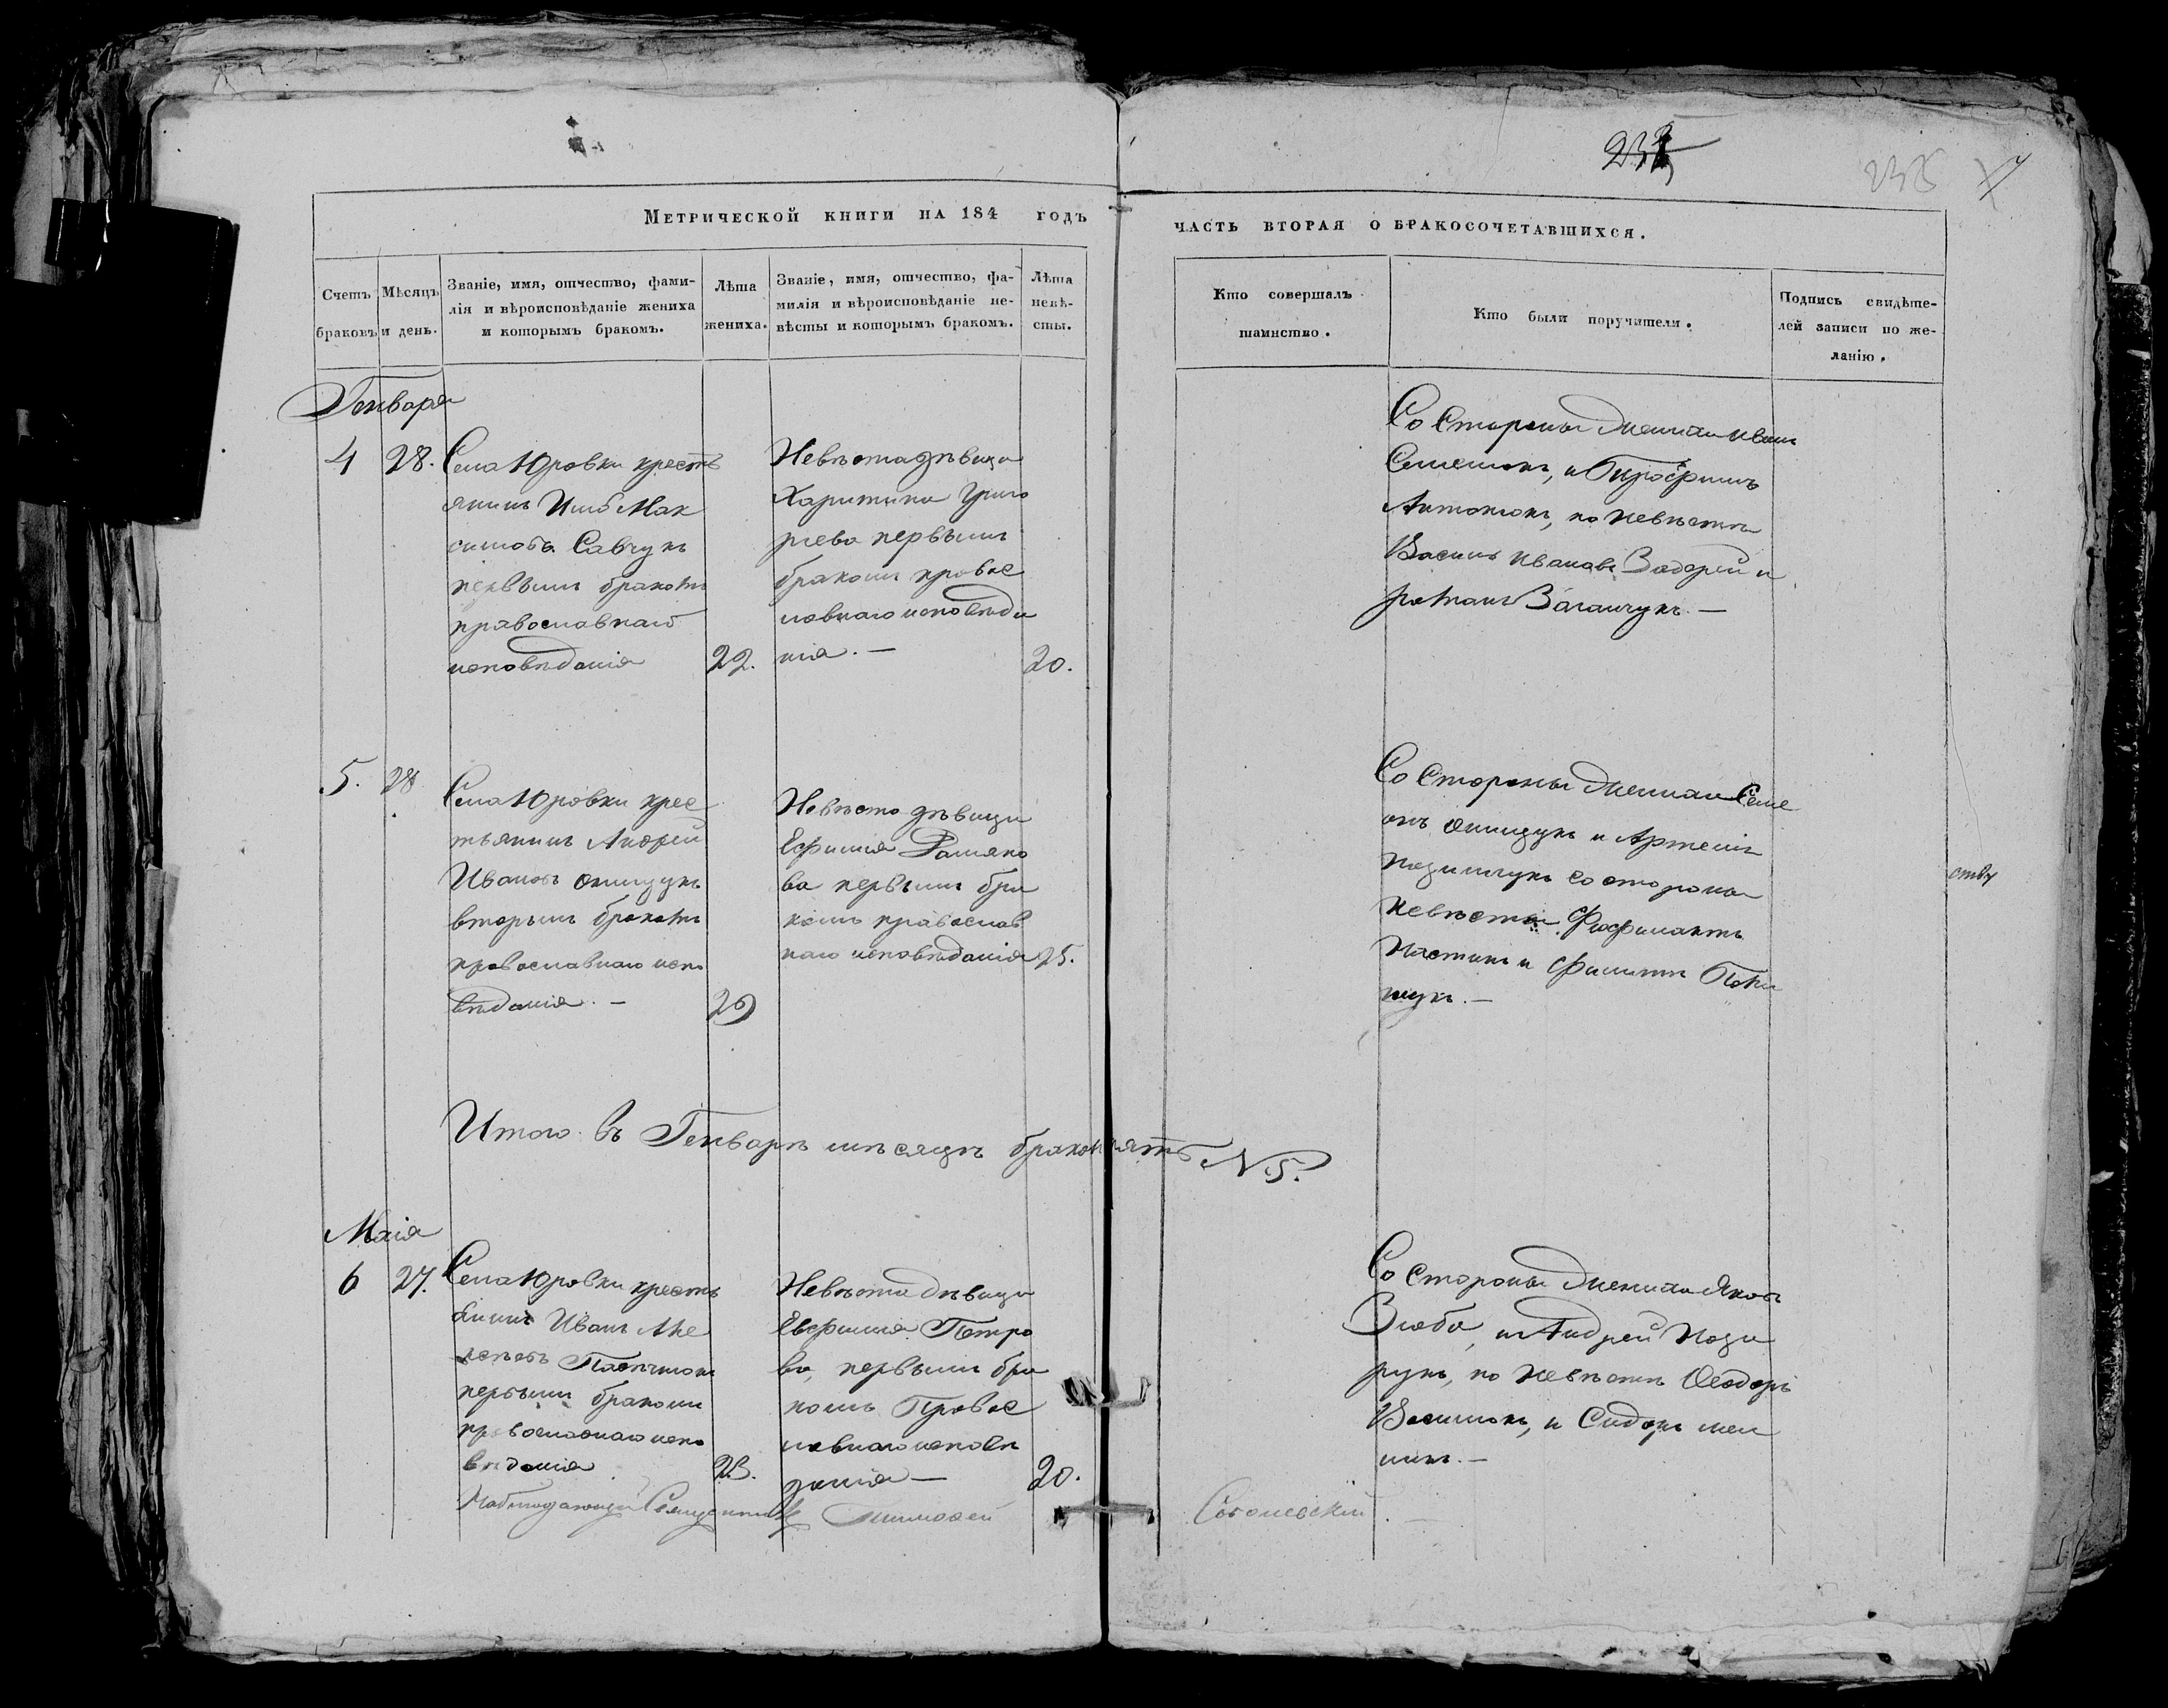 235
МЕТРИЧЕСКОЙ КНИГИ НА 184 ГОДЪ
ЧАСТЬ ВТОРАЯ О БРАКОСОЧЕТАВШИХСЯ.
Счетъ браковъ
Мѣсяцъ и день.
Званіе, имя, отчество, фами-
лія и вѣроисповѣданіе жениха
и которымъ бракомъ.
Лѣта
жениха.
Званіе, имя, отчество, фа-
милія и вѣроисповѣданіе не-
вѣсты и которымъ бракомъ.
Лѣта
невѣ-
сты.
Кто совершалъ
таинство.
Кто были поручители.
Подпись свидѣте-
лей записи по же-
ланію.
Генваря
4
28.
Села Юровки кресть
янинъ Мак
симовъ Савчукъ
первымъ бракомъ
православнаго
исповѣданія
22.
Невѣста дѣвица
Харитина Григо
рієва первымъ
бракомъ правос
лавнаго исповѣда
нія. —
20.
Со Стороны Жениха Иванъ
и Трофимъ
Антонюкъ, по невѣстѣ
Василь Ивановъ и
романъ —
5.
28
Села Юровки крес
тьянинъ Андрей
Ивановъ Онищукъ
вторымъ бракомъ
православнаго испо
вѣданія. —
29
Невѣста дѣвица
Ефимія
ва первымъ бра
комъ православ
наго исповѣданія
25.
Со Стороны Жениха Семе
онъ Онищукъ и Артемій
со стороны
невѣсты
и Филиппъ
щукъ. —
ству
Итого въ Генварѣ мѣсяцѣ браковъ пять № 5.
Маія
6
27.
Села Юровки кресть
янинъ Иванъ Але
первымъ бракомъ
православнаго испо
вѣданія
23.
Невѣста дѣвица
Евфимія Петро
ва, первымъ бра
комъ Правос
лавнаго исповѣ
данія —
20.
Со Стороны Жениха Яковъ
и Андрей
рукъ, по невѣстѣ Ѳеодоръ
и Сидоръ мел
никъ. —
Наблюдающій Священникъ Тимофей